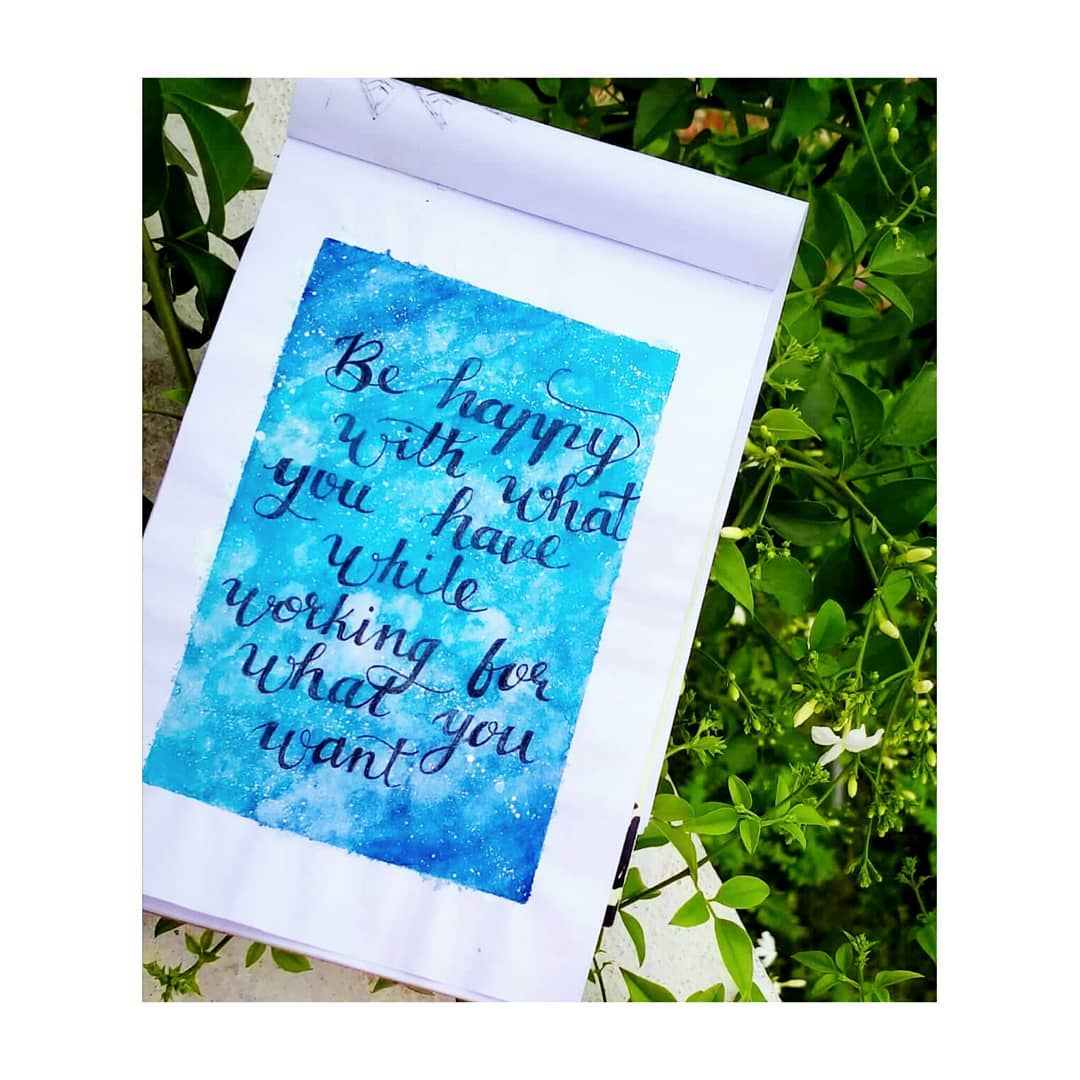 Be happy
with what
you have
while
working for
what you
want